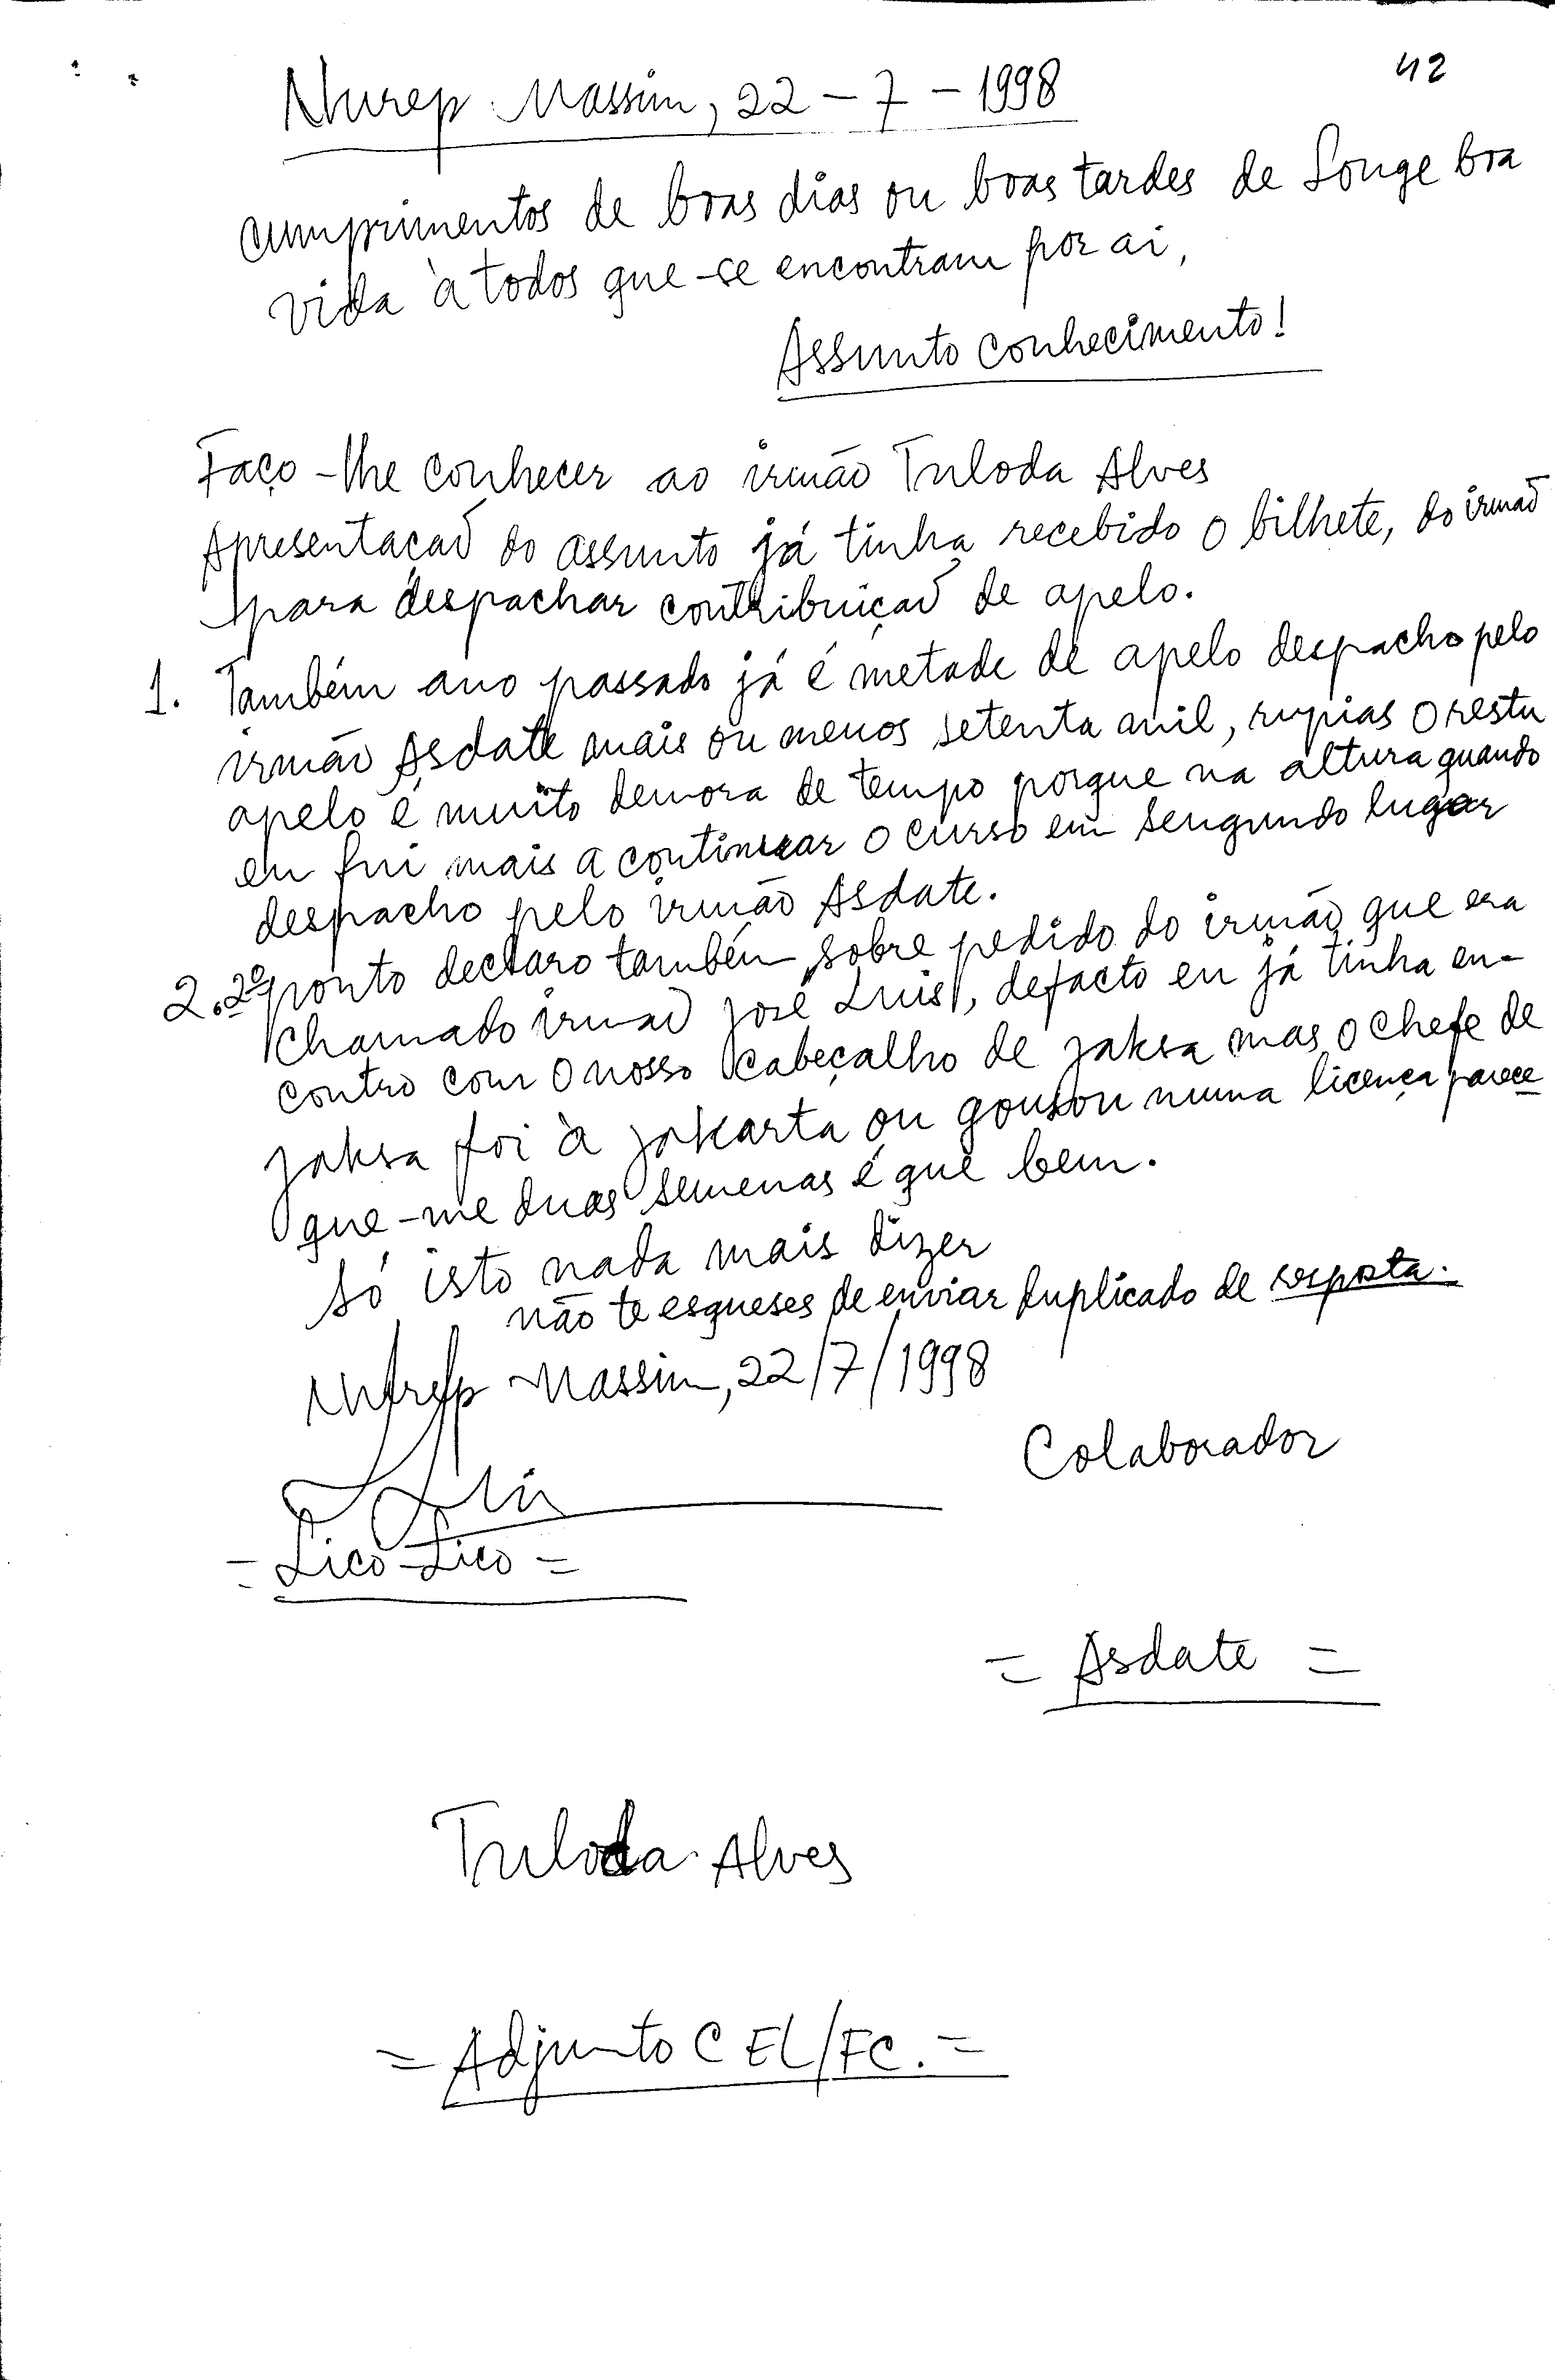 42
Nurep Massin, 22 - 7 - 1998
cumprimentos de boas dias ou boas tardes de Longe boa
vida à todos que-se encontram por ai,
Assunto conhecimento!
Faço-lhe conhecer ao irmão Tuloda Alves
Apresentaçaõ do assunto já tinha recebido o bilhete, do irmaõ
para despachar contribuiçaõ de apelo.
1. Também ano passado já é metade de apelo despacho pelo
irmão Asdate mais ou menos setenta mil, rupias o restu
apelo é muito demora de tempo porque na altura quando
eu fui mais a continuar o curso em sengundo lugar
despacho pelo irmão Asdate.
2. 2º ponto declaro também sobre pedido do irmão que era
chamado irmaõ José Luis, defacto eu já tinha en-
contro com o nosso cabeçalho de jaksa mas o chefe de
jaksa foi à jakarta ou gousou numa licença parece
que-me duas semenas é que bem.
Só isto nada mais dizer
não te esqueses de enviar duplicado de resposta.
Massin, 22/7/1998
Colaborador
= Lico-Lico =
= Asdate =
Tuloda Alves
= Adjunto CEL/FC. =